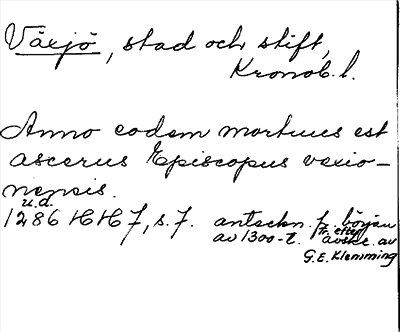 Växjö, stad och stift,
Kronob. l.
Anno eodem mortuus est
ascerus Episcopus vexio-
nensis.
u.d.
1286 HH 7, s. 7. anteckn. f. början
av 1300-t. tr. efter avskr. av
G.E. Klemming